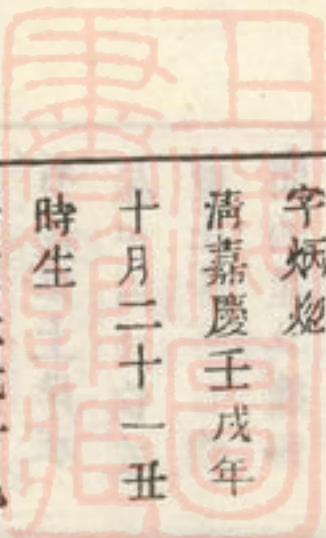 字炳
清嘉慶壬戌年
十月二十一丑
時生